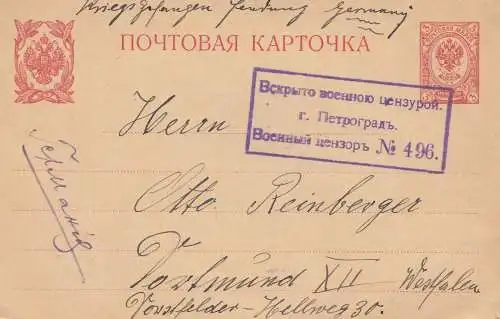 Kriegsgefangen Sendung Germany
ПОЧТОВАЯ КАРТОЧКА
Вскрыто военною цензурой.
г. Петроградъ.
Военный цензоръ № 496.
Herrn
Германія
Otto Reinberger
Dortmund XII Westfalen
Vorstfelder-Hellweg 30.